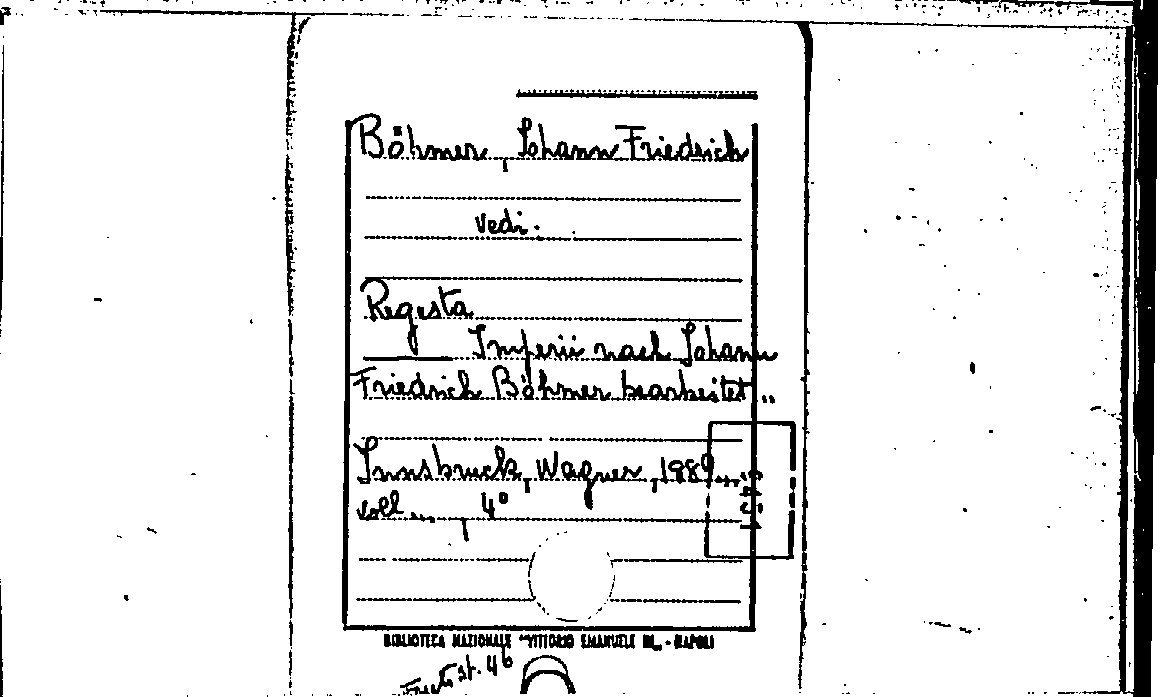 Böhmer, Johann Friedrich
vedi.
Regesta
Imperii nach Johann
Friedrich Böhmer bearbeitet..
Innsbruck, Wagner, 1989...
voll..., 4°
BIBLIOTECA NAZIONALE "VITTORIO EMANUELE III„ - NAPOLI
st. 46